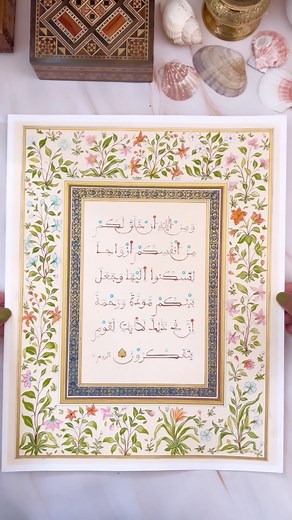 ومن آياته أن خلق لكم
من أنفسكم أزواجا
لتسكنوا إليها وجعل
بينكم مودة ورحمة
إن في ذلك لآيات لقوم
يتفكرون الروم